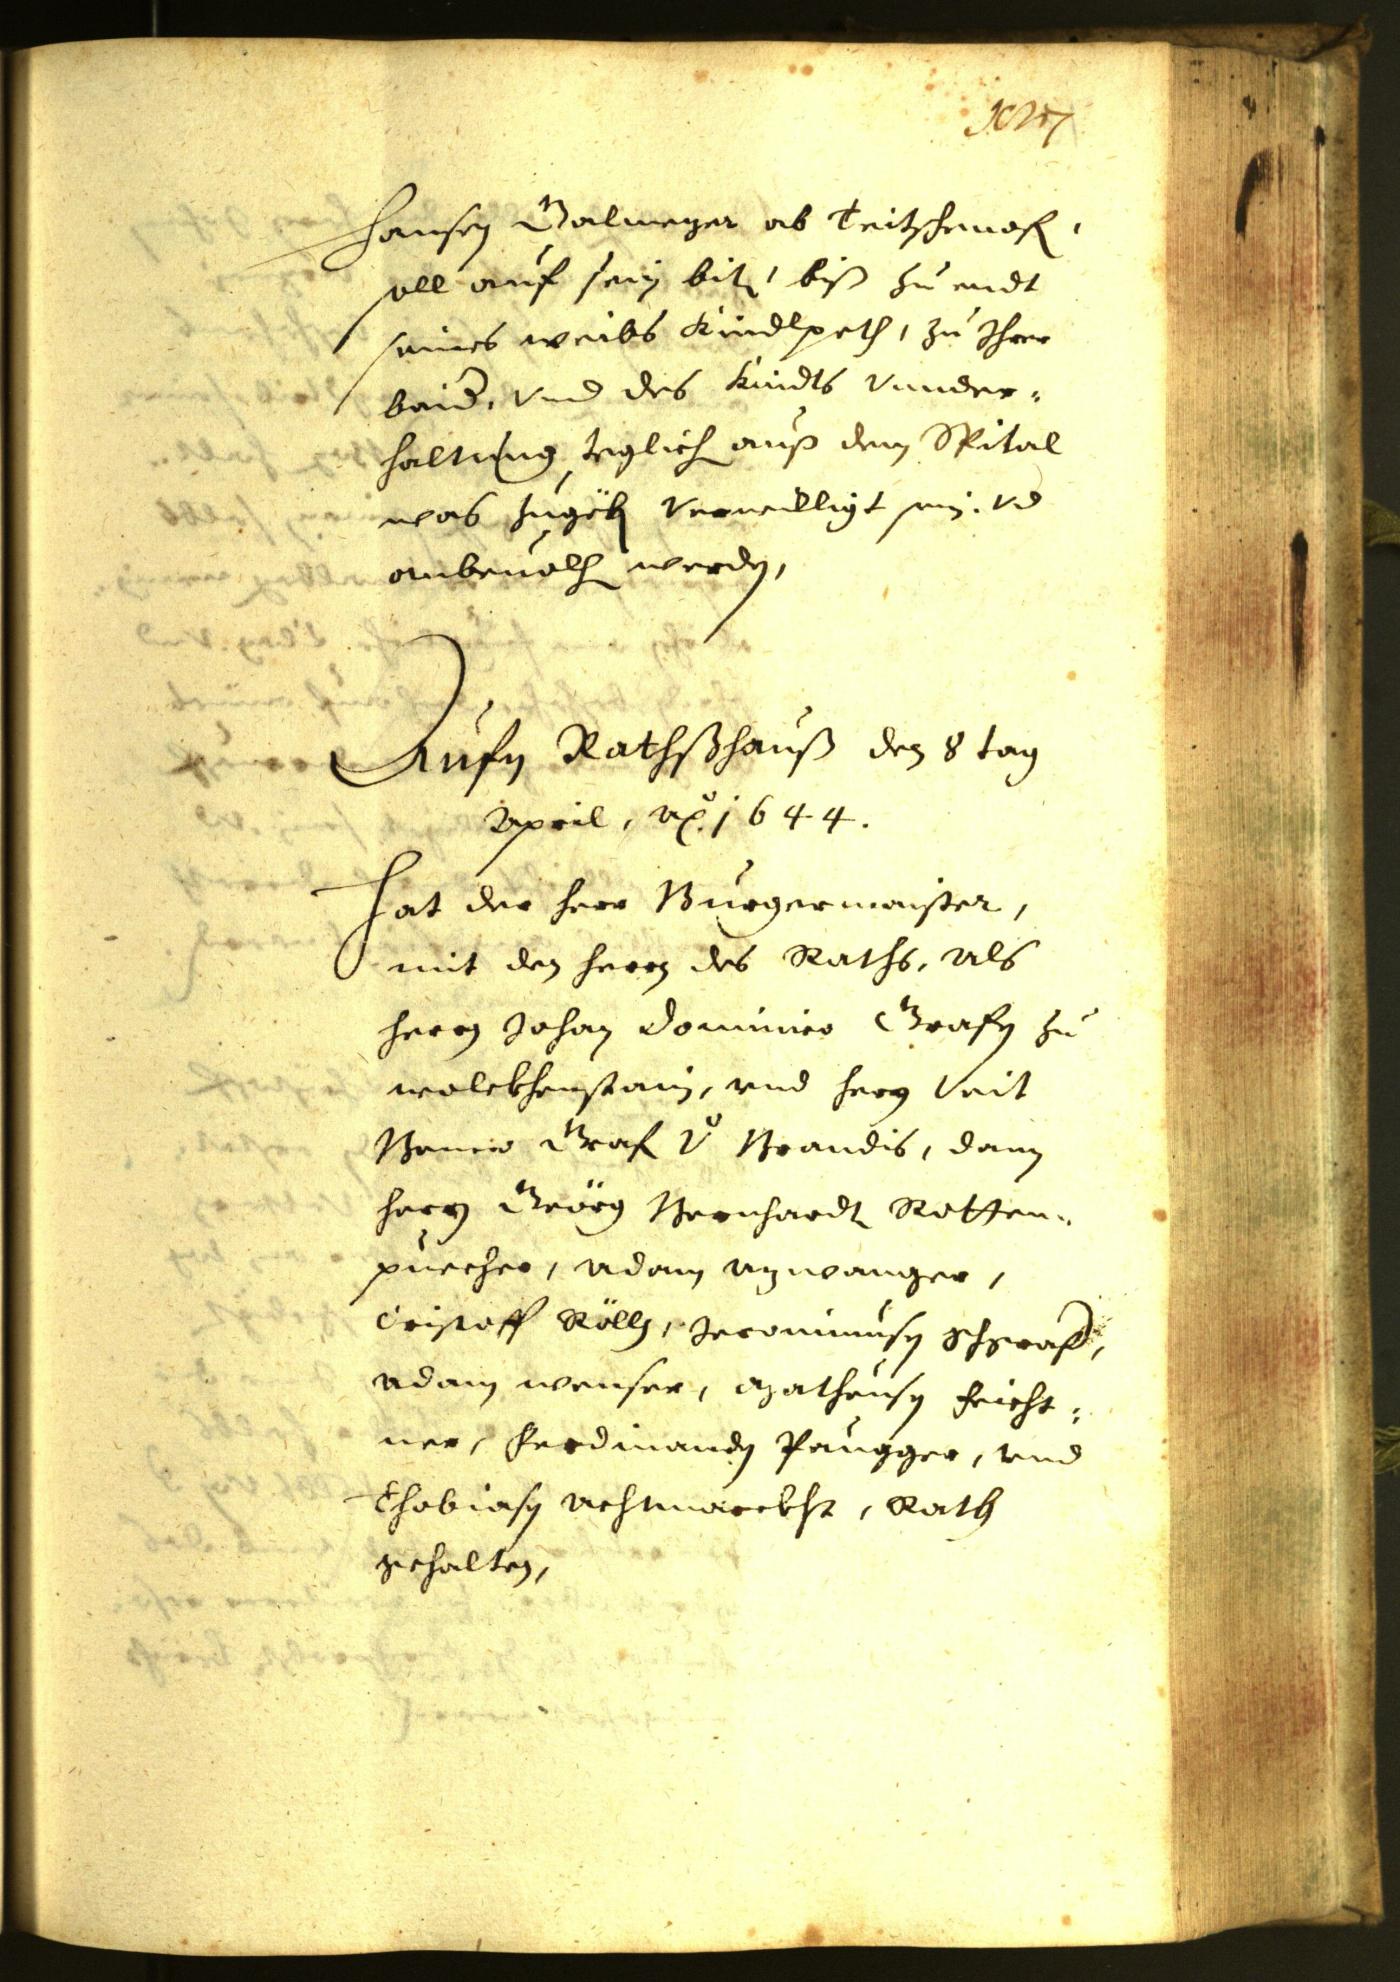 Hansen Galmeyer ab Teitschenof,
soll auf sein bit, biß zu endt
seines weibs Kindlpeth, zu Ihrer
baid. vnd des Kindts vnnder-
haltung teglich auß dem Spital
was zugeb verwilligt sein. vnd
anbeuolh werden,
Aufm Rathßhauß den 8 tag
April, Ao. 1644.
Hat der herr Burgermaister,
mit den herrn des Raths, als
herrn Johan Dominico Grafen zu
wolckhenstain, vnd herrn Veit
Benno Graf v Brandis, dann
herrn Geörg Bernhardt Rotten-
puecher, Adam Anwanger,
Cristoff Röll, Jeronimusen
Adam wenser, Matheusen Feicht-
ner, Ferdinanden Paugger, vnd
Thobiasen Achtmarckht, Rath
gehalten,